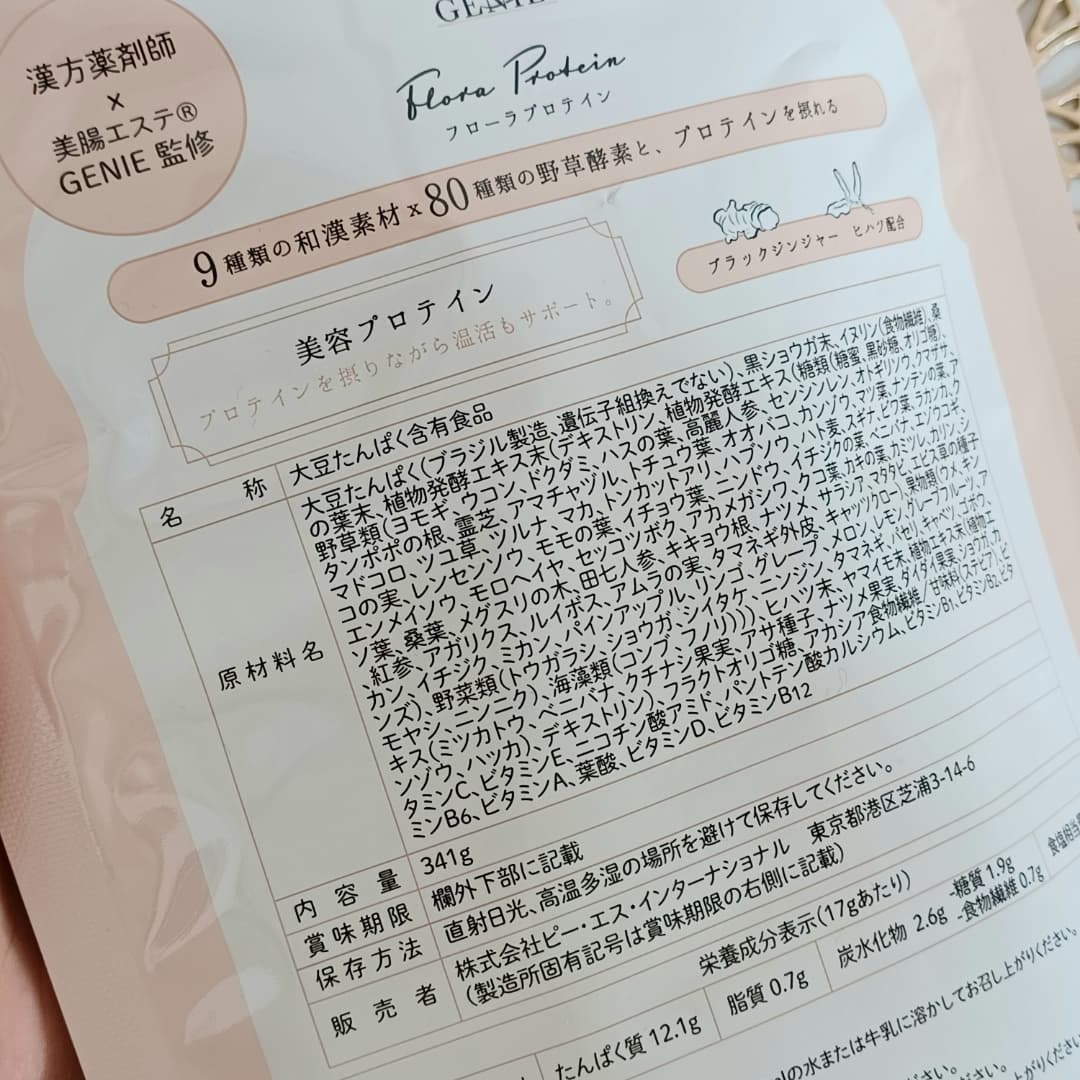 GENIE
漢方薬剤師
×
美腸エステ®
GENIE 監修
Flora Protein
フローラプロテイン
9種類の和漢素材 x 80種類の野草酵素と、プロテインを摂れる
ブラックジンジャー ヒハツ配合
美容プロテイン
プロテインを摂りながら温活もサポート。
名称 大豆たんぱく含有食品
原材料名
大豆たんぱく(ブラジル製造、遺伝子組換えでない)、黒ショウガ末、イヌリン(食物繊維)、桑
の葉末、植物発酵エキス末(デキストリン、植物発酵エキス(糖類(糖蜜、黒砂糖、オリゴ糖)、
野草類(ヨモギ、ウコン、ドクダミ、ハスの葉、高麗人参、センシンレン、オトギリソウ、クマザサ、
タンポポの根、霊芝、アマチャヅル、トチュウ葉、オオバコ、カンゾウ、マツ葉、ナンテンの葉、ア
マドコロ、ツユ草、ツルナ、マカ、トンカットアリ、ハブソウ、ハト麦、スギナ、ビワ葉、ラカンカ、ク
コの実、レンセンソウ、モモの葉、イチョウ葉、ニンドウ、イチジクの葉、ベニバナ、エゾウコギ、
エンメイソウ、モロヘイヤ、セッコツボク、アカメガシワ、クコ葉、カキの葉、カミツレ、カリン、シ
ソ葉、桑葉、メグスリの木、田七人参、キキョウ根、ナツメ、サラシア、マタタビ、エビス草の種子
、紅参、アガリクス、ルイボス、アムラの実、タマネギ外皮、キャッツクロー)、果物類(ウメ、キン
カン、イチジク、ミカン、パインアップル、リンゴ、グレープ、メロン、レモン、グレープフルーツ、ア
ンズ)、野菜類(トウガラシ、ショウガ、シイタケ、ニンジン、タマネギ、パセリ、キャベツ、ゴボウ、
モヤシ、ニンニク)、海藻類(コンブ、フノリ))))、ヒハツ末、ヤマイモ末、植物エキス末(植物エ
キス(ミツカトウ、ベニバナ、クチナシ果実、アサ種子、ナツメ果実、ダイダイ果実、ショウガ、カ
ンゾウ、ハッカ)、デキストリン)、フラクトオリゴ糖、アカシア食物繊維/甘味料(ステビア)、ビ
タミンC、ビタミンE、ニコチン酸アミド、パントテン酸カルシウム、ビタミンB1、ビタミンB2、ビタ
ミンB6、ビタミンA、葉酸、ビタミンD、ビタミンB12
内容量 341g
賞味期限 欄外下部に記載
保存方法 直射日光、高温多湿の場所を避けて保存してください。
販売者 株式会社ピー・エス・インターナショナル 東京都港区芝浦3-14-6
(製造所固有記号は賞味期限の右側に記載)
栄養成分表示(17gあたり)
たんぱく質 12.1g 脂質 0.7g 炭水化物 2.6g -糖質 1.9g
-食物繊維 0.7g
食塩相当
の水または牛乳に溶かしてお召し上がりください。